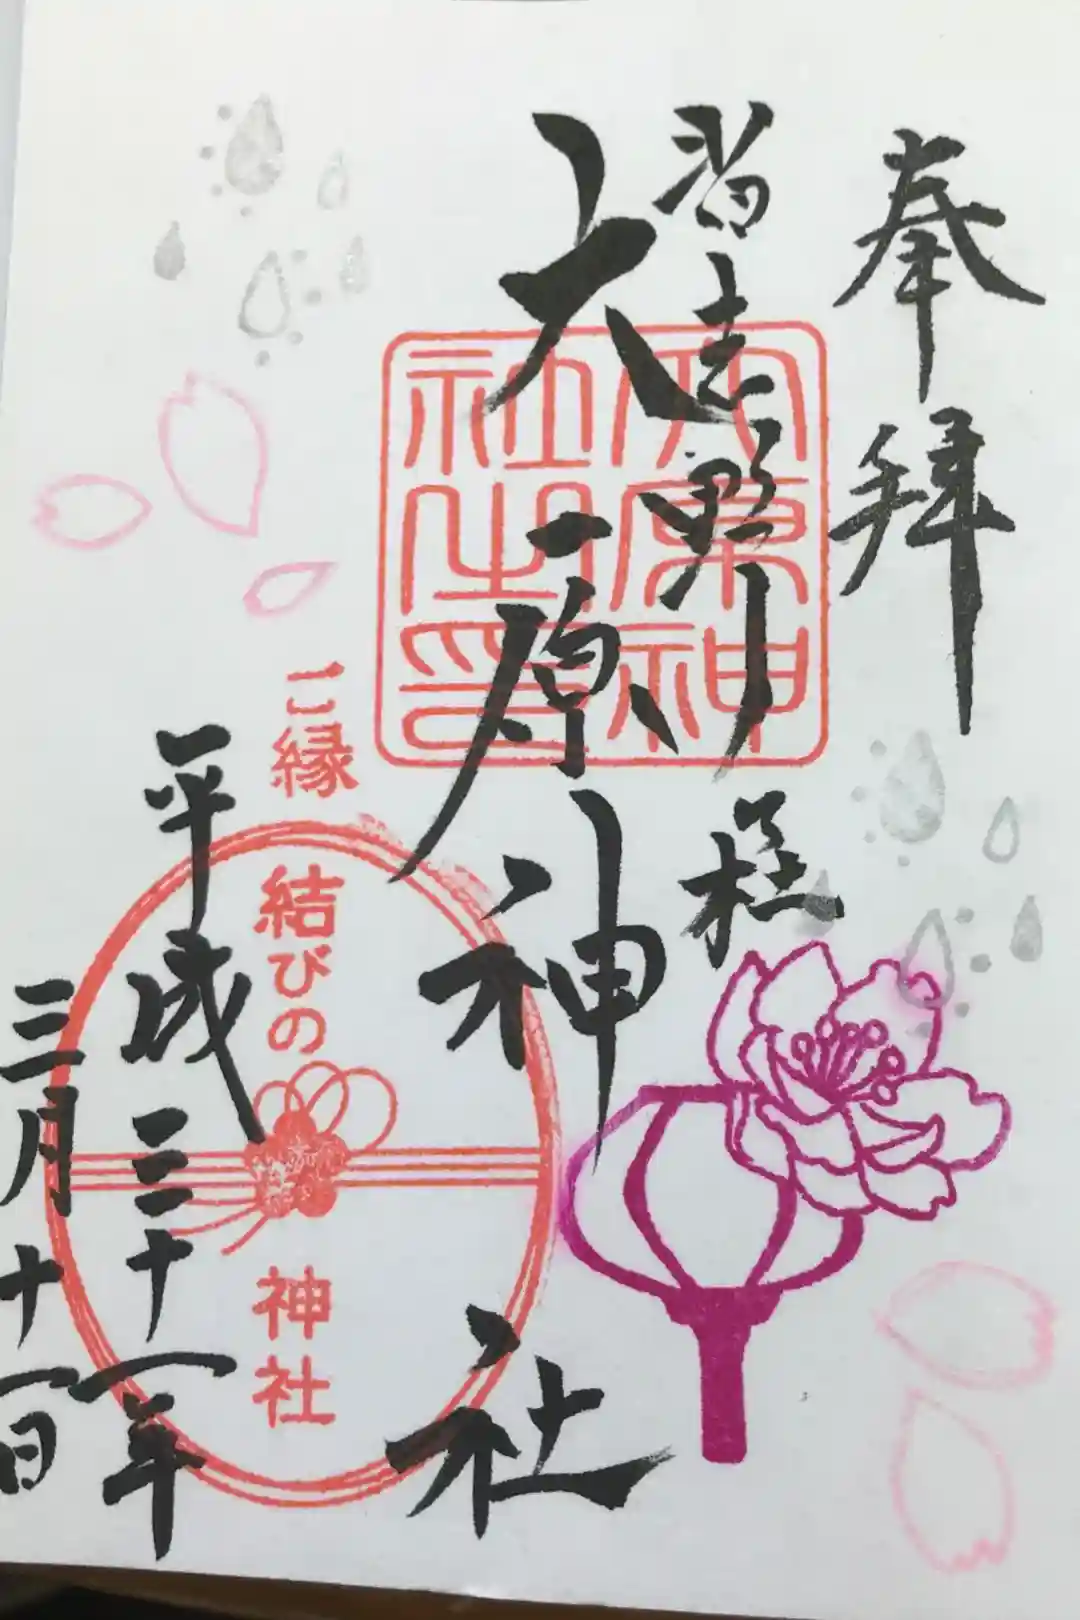 奉拝
習志野
大原神社
大原神
社之印
ご縁結びの神社
平成三十一年
三月十一日